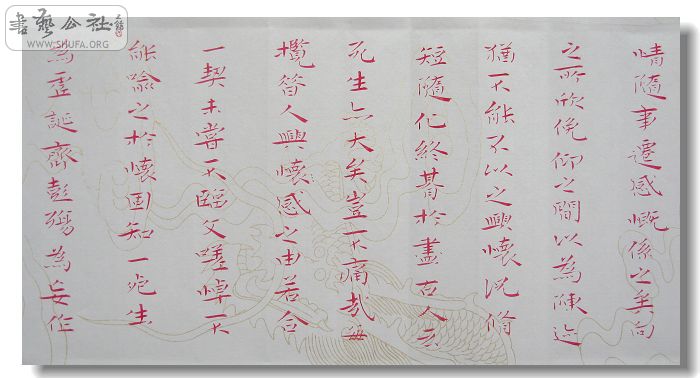 情隨事遷感慨係之矣向
之所欣俛仰之間以為陳迹
猶不能不以之興懷況脩
短隨化終朞於盡古人云
死生亦大矣豈不痛哉每
攬昔人興懷感之由若合
一契未嘗不臨文嗟悼不
能喻之於懷固知一死生
為虛誕齊彭殤為妄作
書藝公社
WWW.SHUFA.ORG